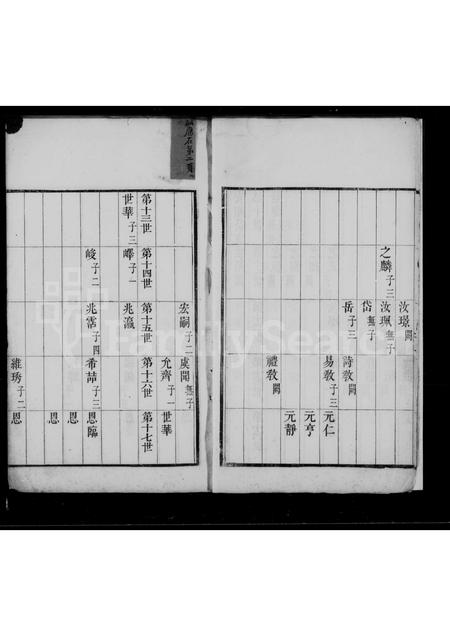 汝璟闕
之麟子三
汝珮無子
岱無子
岳子三
詩敎闕
易敎子三
元仁
元亨
禮敎闕
元靜
宏嗣子二
虞聞無子
允齊子一
世華
第十三世
第十四世
第十五世
第十六世
第十七世
世華子三
嶧子一
兆瀛
峻子二
兆霑子四
希喆子三
恩臨
恩
恩
維琇子二
恩
FamilySearch